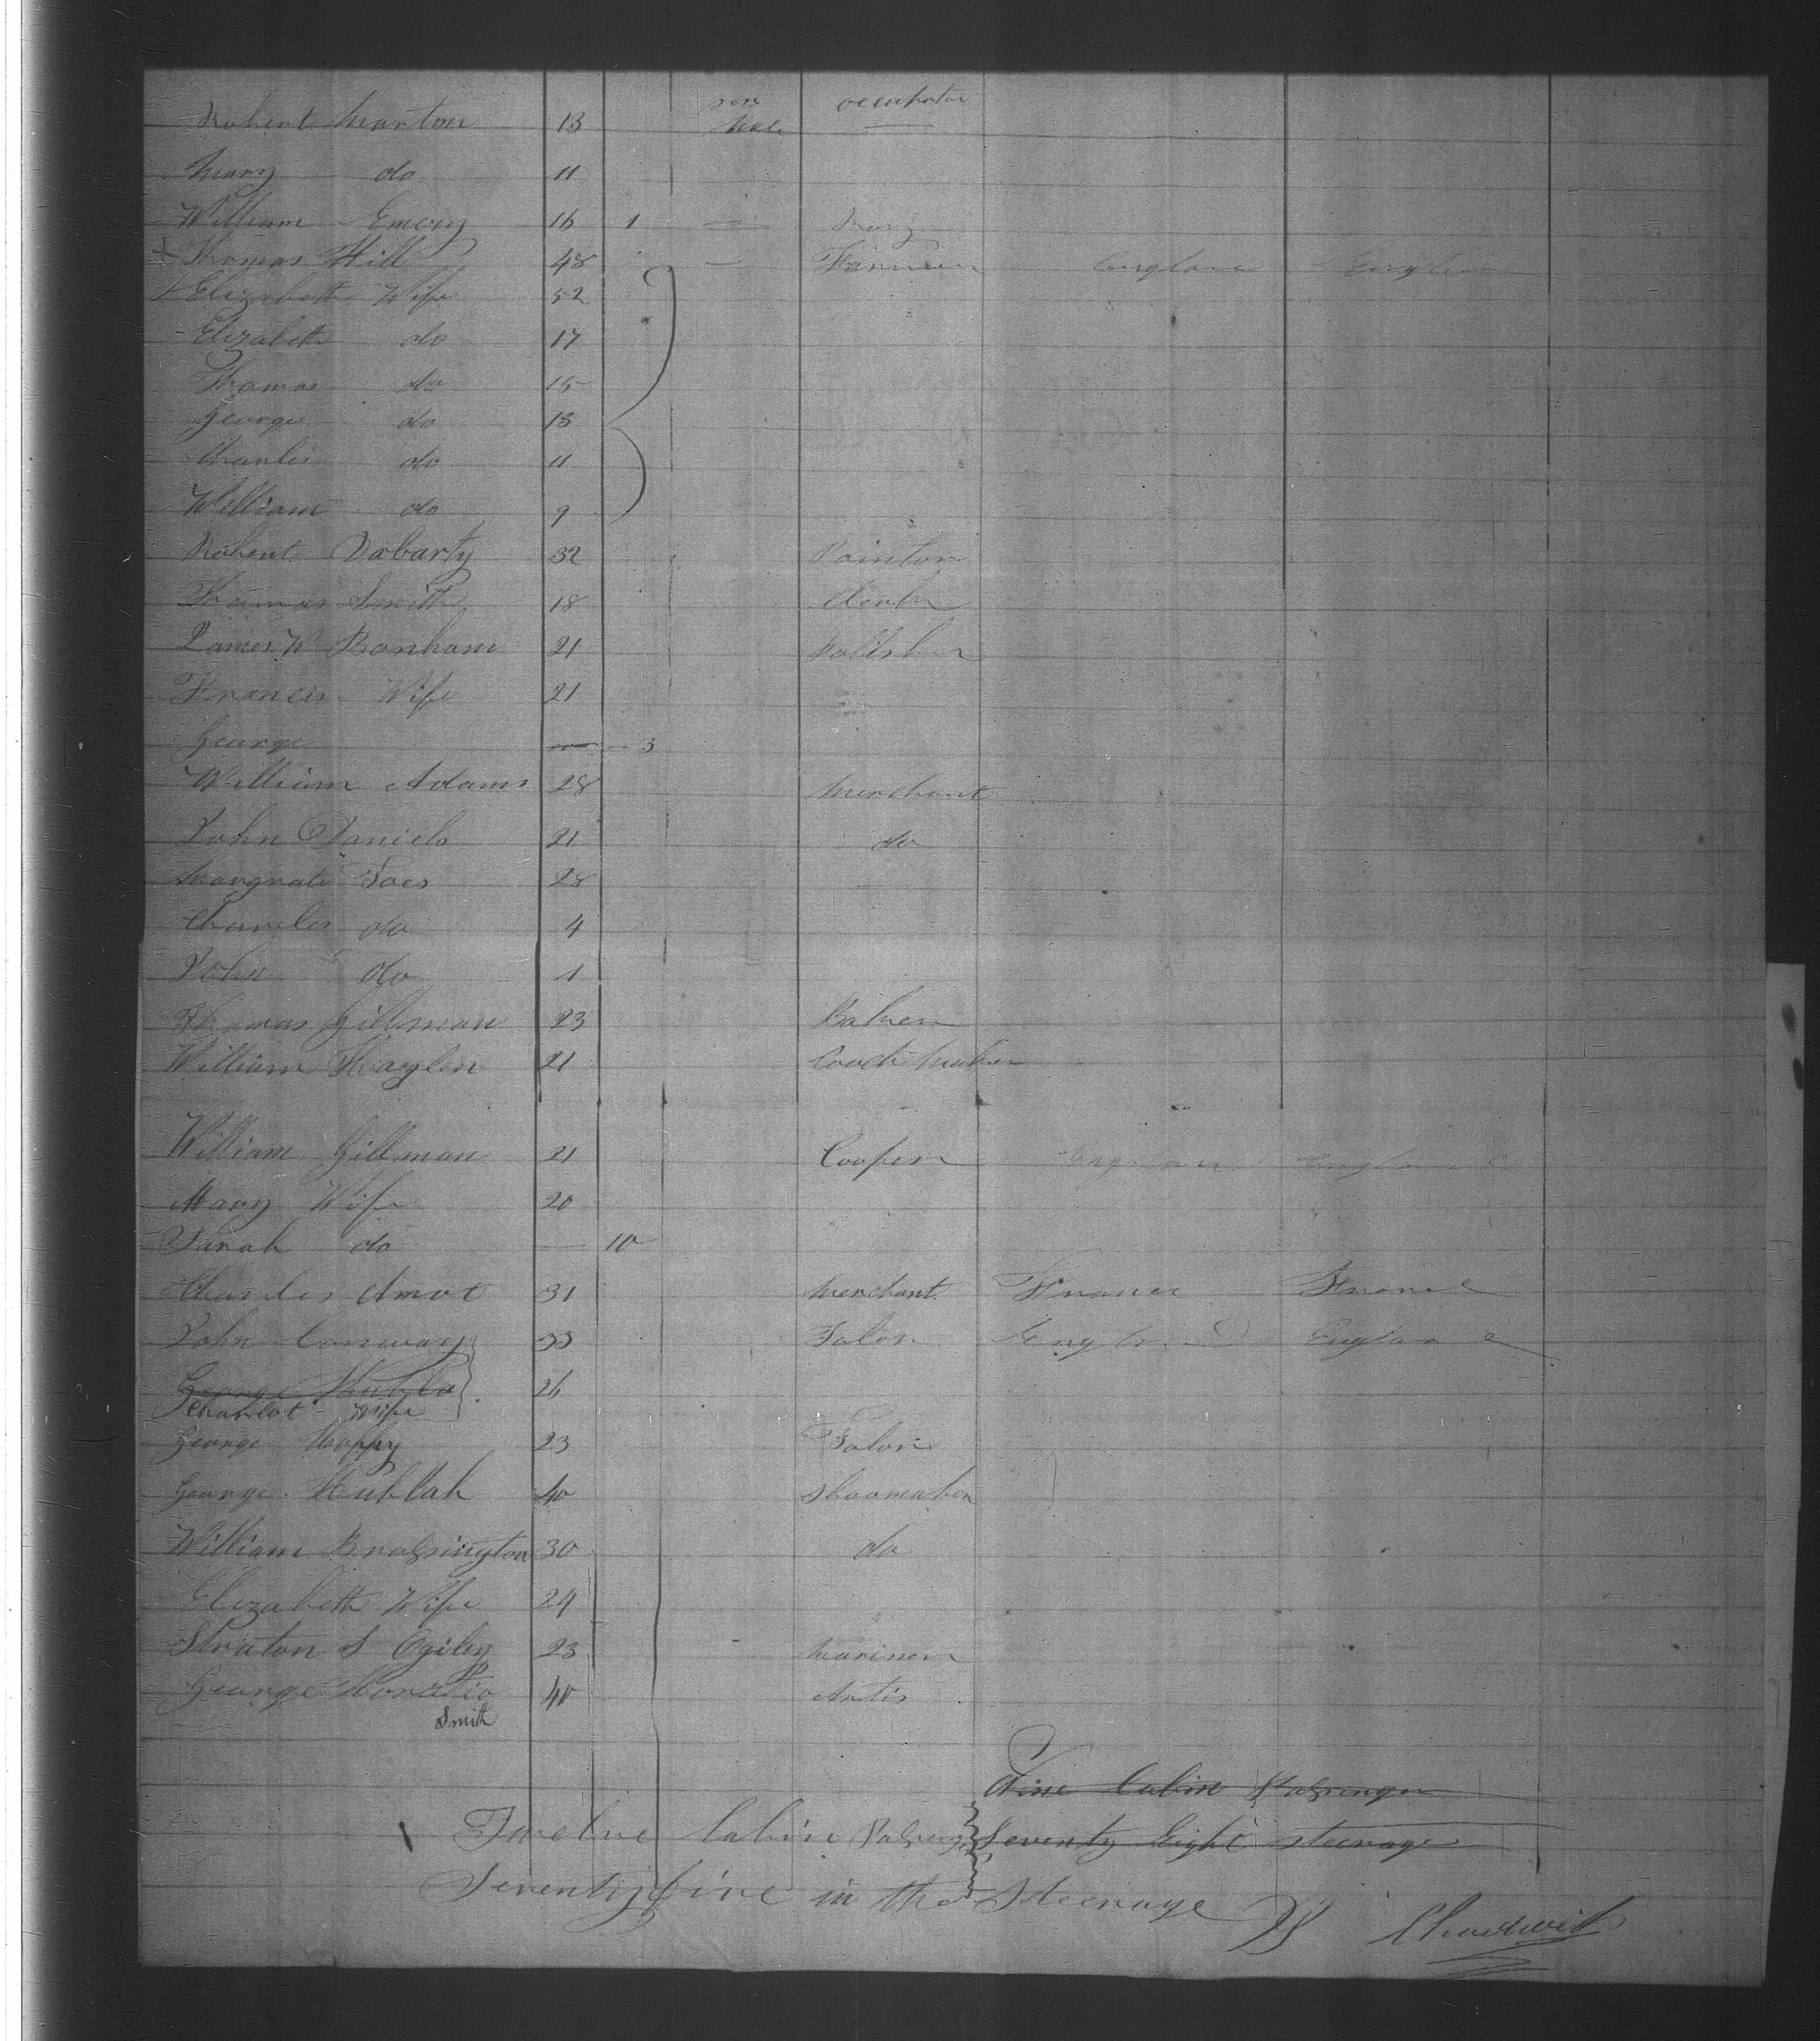 sex occupation
Robert Marton 13 Male —
Mary do 11
William Emery 16 1 —
Thomas Hill 48 — Farmer England England
Elizabeth Wife 52
Elizabeth do 17
Thomas do 15
George do 13
Charles do 11
William do 9
Robert Dobarty 32 Painter
Thomas Smith 18
James W Bonham 21 Polisher
Francis Wife 21
George — 3
William Adams 28 Merchant
John Daniels 21 do
Margrate Toes 28
Charles do 4
John do 1
Thomas Gillman 23 Baker
William Haylen 21 Coach Maker
William Gillman 21 Cooper England England
Mary Wife 20
Sarah do — 10
Charles Amot 31 Merchant France France
John Conway 33 Talor England England
George Hubla 26
Charlot Wife
George Hoppy 23 Talor
George Hublah 40 Shoomaker
William Brassington 30 do
Elizabeth Wife 24
Straton S Ogilby 23 Mariner
George Horatio 40 Artis
Smith
Nine Cabin Passenger
Twelve Cabin Passeng Seventy Eight steerage
Seventy five in the Steerage
Chadwick